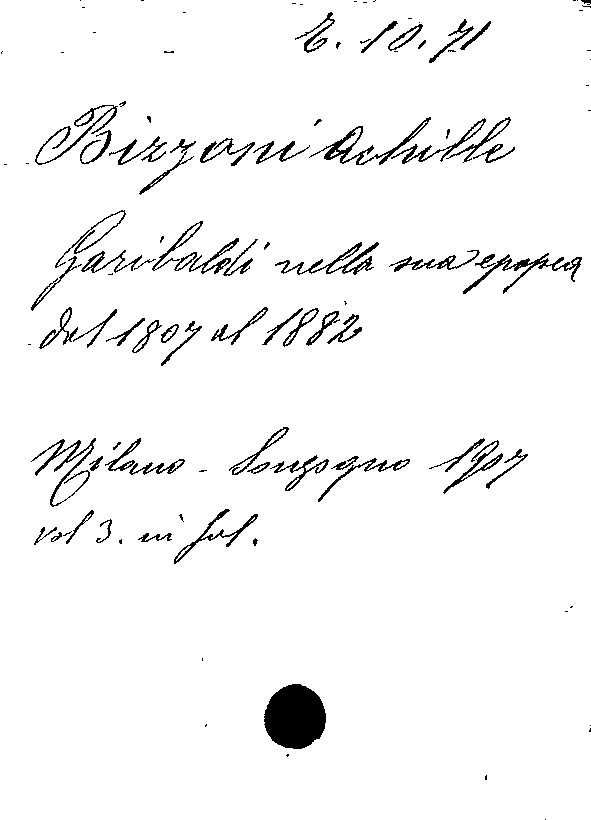 E. 10. 71
Bizzoni Achille
Garibaldi nella sua epopea
dal 1807 al 1882
Milano - Sonzogno 1907
vol 3. in fol.